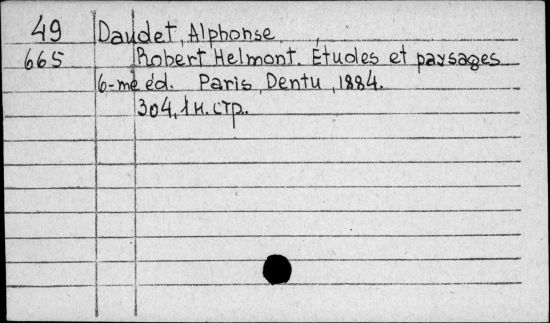 49 Daudet, Alphonse.
665 Robert Helmont. Études et paysages
6-me éd. Paris, Dentu, 1884.
304, 1 н. стр.